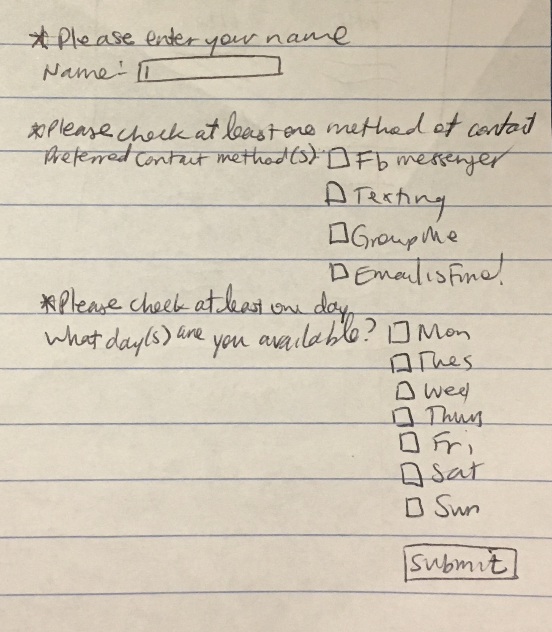 * Please enter your name
Name:
* Please check at least one method of contact
Preferred contact method(s): Fb messenger
Texting
GroupMe
Email is Fine!
* Please check at least one day
What day(s) are you available? Mon
Thes
Wed
Thurs
Fri
Sat
Sun
Submit